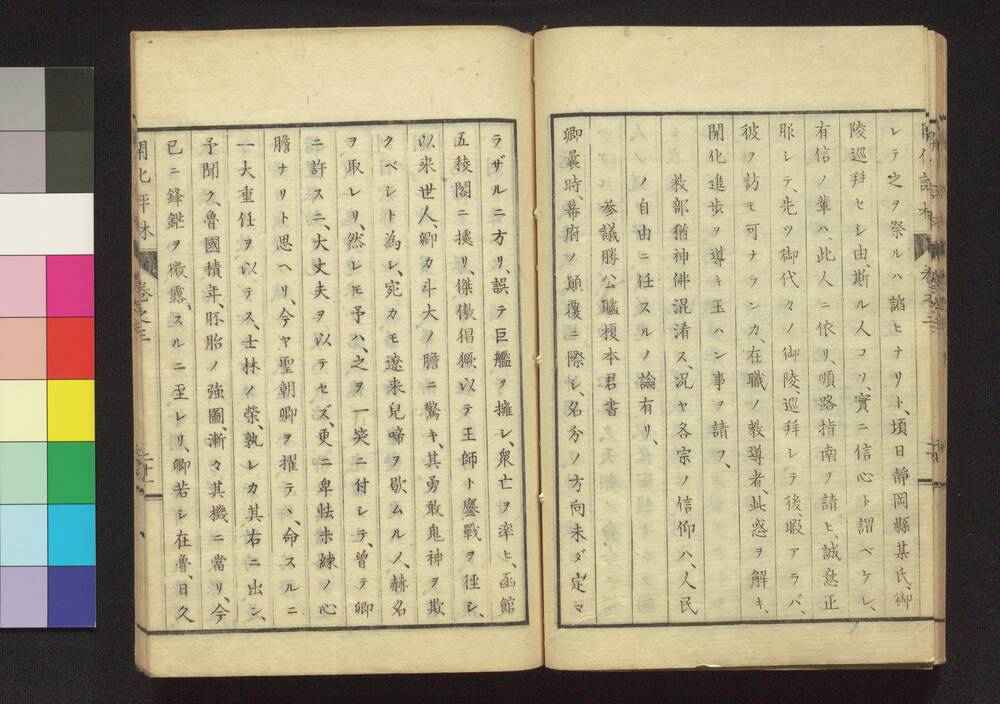 レテ之ヲ祭ルハ諂ヒナリト、頃日靜岡縣某氏、御
陵巡拜セシ由、斯ル人コソ、實ニ信心ト謂ベケレ、
有信ノ輩ハ、此人ニ依リ、順路指南ヲ請ヒ、誠意正
服シテ、先ツ御代々ノ御陵、巡拜シテ後、暇アラバ、
彼ヲ訪モ可ナランカ、在職ノ教導者、此惑ヲ解キ、
開化進歩ヲ導キ玉ハン事ヲ請フ、
教部猶神佛混淆ス、况ヤ各宗ノ信仰ハ、人民
ノ自由ニ任スルノ論有リ、
参議勝公贈榎本君書
卿曩時、幕府ノ顛覆ニ際シ、名分ノ方向未ダ定マ
ラザルニ方リ、誤テ巨艦ヲ擁シ、衆亡ヲ率ヒ、函館
五稜閣ニ據リ、傑傲猖獗、以テ王師ト鏖戰ヲ徑シ、
以来世人、卿カ斗大ノ膽ニ驚キ、其勇敢鬼神ヲ欺
クベシト為シ、宛カモ遼来兒啼ヲ歇ムルノ、赫名
ヲ取レリ、然レ𪜈予ハ、之ヲ一笑ニ付シテ、曽テ卿
ニ許スニ、大丈夫ヲ以テセズ、更ニ卑怯未練ノ心
膽ナリト思ヘリ、今ヤ聖朝卿ヲ擢テハ、命スルニ
一大重任ヲ以テス、士林ノ榮、孰レカ其右ニ出ン、
予聞ク、魯國積年、胚胎ノ強圖、漸々其機ニ當リ、今
已ニ鋒鋩ヲ微露スルニ至レリ、卿若シ在魯、日久
開化評林
巻之二